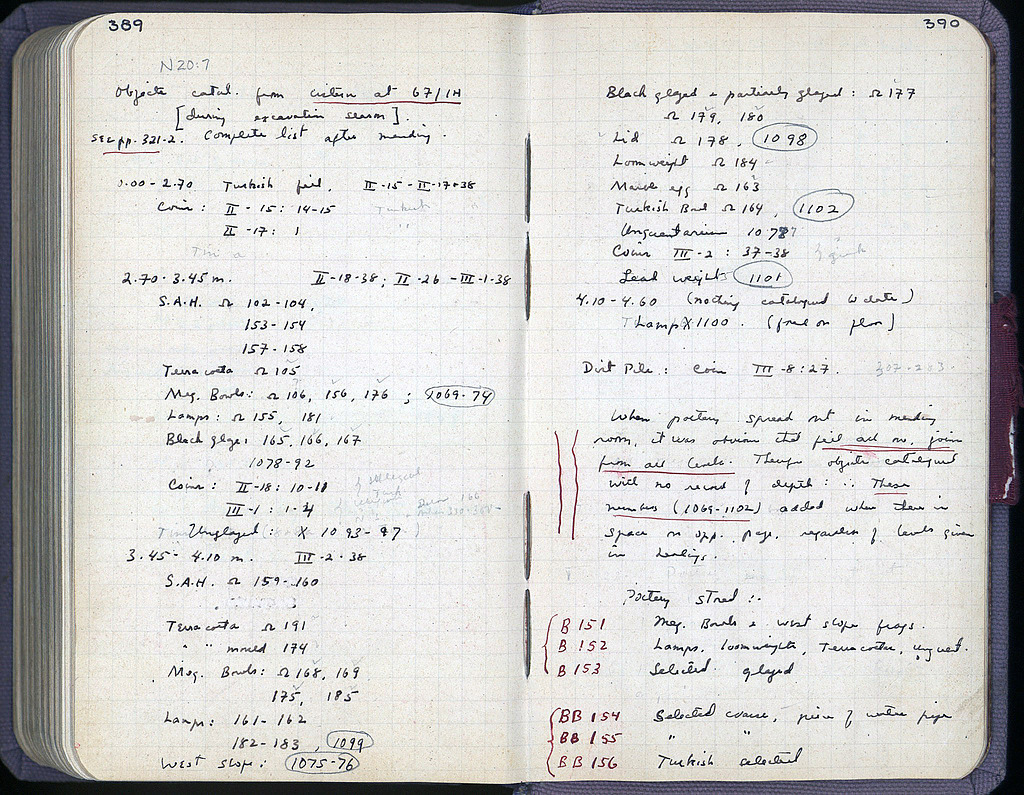 389
N 20:7
Objects catal. from cistern at 67/ΙΗ
[during excavation season].
See pp. 321-2. Complete list after mending.
0.00 - 2.70 Turkish fill, II-15 - II-17-38
Coin: II - 15: 14-15 Turkish
II - 17: 1 "
2.70 - 3.45 m. II-18-38; II-26 - III-1-38
S.A.H. Ω 102-104,
153-154
157-158
Terracotta Ω 105
Meg. Bowls: Ω 106, 156, 176; 1069-74
Lamps: Ω 155, 181
Black glaze: 165, 166, 167
1078-92
Coins: II-18: 10-11
III-1: 1-4
Unglazed: X 1093-97
3.45 - 4.10 m. III-2-38
S.A.H. Ω 159-160
Terracotta Ω 191
" " mould 174
Meg. Bowls: Ω 168, 169
175, 185
Lamps: 161-162
182-183, 1099
West slope: 1075-76
390
Black glazed & partially glazed: Ω 177
Ω 179, 180
Lid Ω 178, 1098
Loomweight Ω 184
Marble egg Ω 163
Turkish Bowl Ω 164, 1102
Unguentarium 1077
Coins III-2: 37-38
Lead weight 1101
4.10 - 4.60 (nothing catalogued to date)
Lamp X 1100. (found on floor)
Dirt Pile: Coin III-8:27.
When pottery spread out in mending
room, it was obvious that fill all one, joins
from all levels. Though objects catalogued
with no record of depth: ∴ These
numbers (1069-1102) added when there is
space on opp. page, regardless of levels given
in headings.
Pottery stored:-
B 151 Meg. Bowls & west slope frags.
B 152 Lamps, loomweights, Terracottas, unguent.
B 153 Selected glazed
BB 154 Selected coarse, piece of water pipe
BB 155 " "
BB 156 Turkish selected